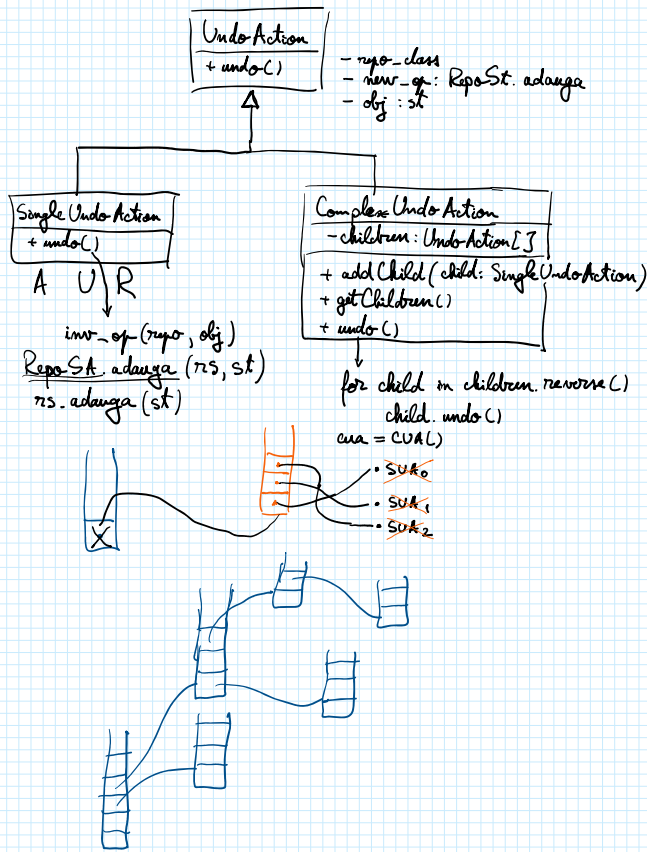 UndoAction
+ undo()
- repo_class
- new_op: RepoSt.adauga
- obj : st
SingleUndoAction
+ undo()
A U R
inv_op(repo, obj)
RepoSA.adauga (rs, st)
rs.adauga(st)
ComplexUndoAction
- children: UndoAction[]
+ addChild(child: SingleUndoAction)
+ getChildren()
+ undo()
for child in children.reverse()
child.undo()
cua = CUA()
• SUA0
• SUA1
• SUA2
X